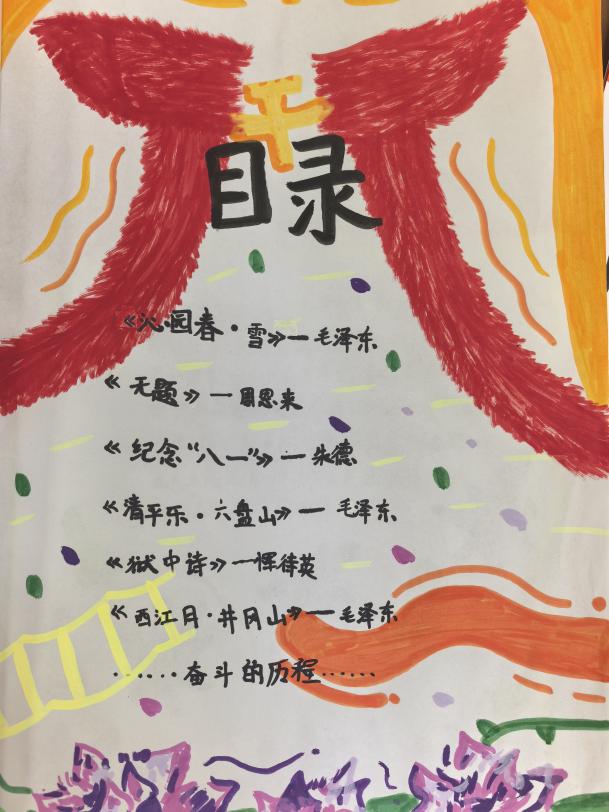 目录
《沁园春·雪》—毛泽东
《无题》—周恩来
《纪念“八一”》—朱德
《清平乐·六盘山》—毛泽东
《狱中诗》—恽待英
《西江月·井冈山》—毛泽东
......奋斗的历程......